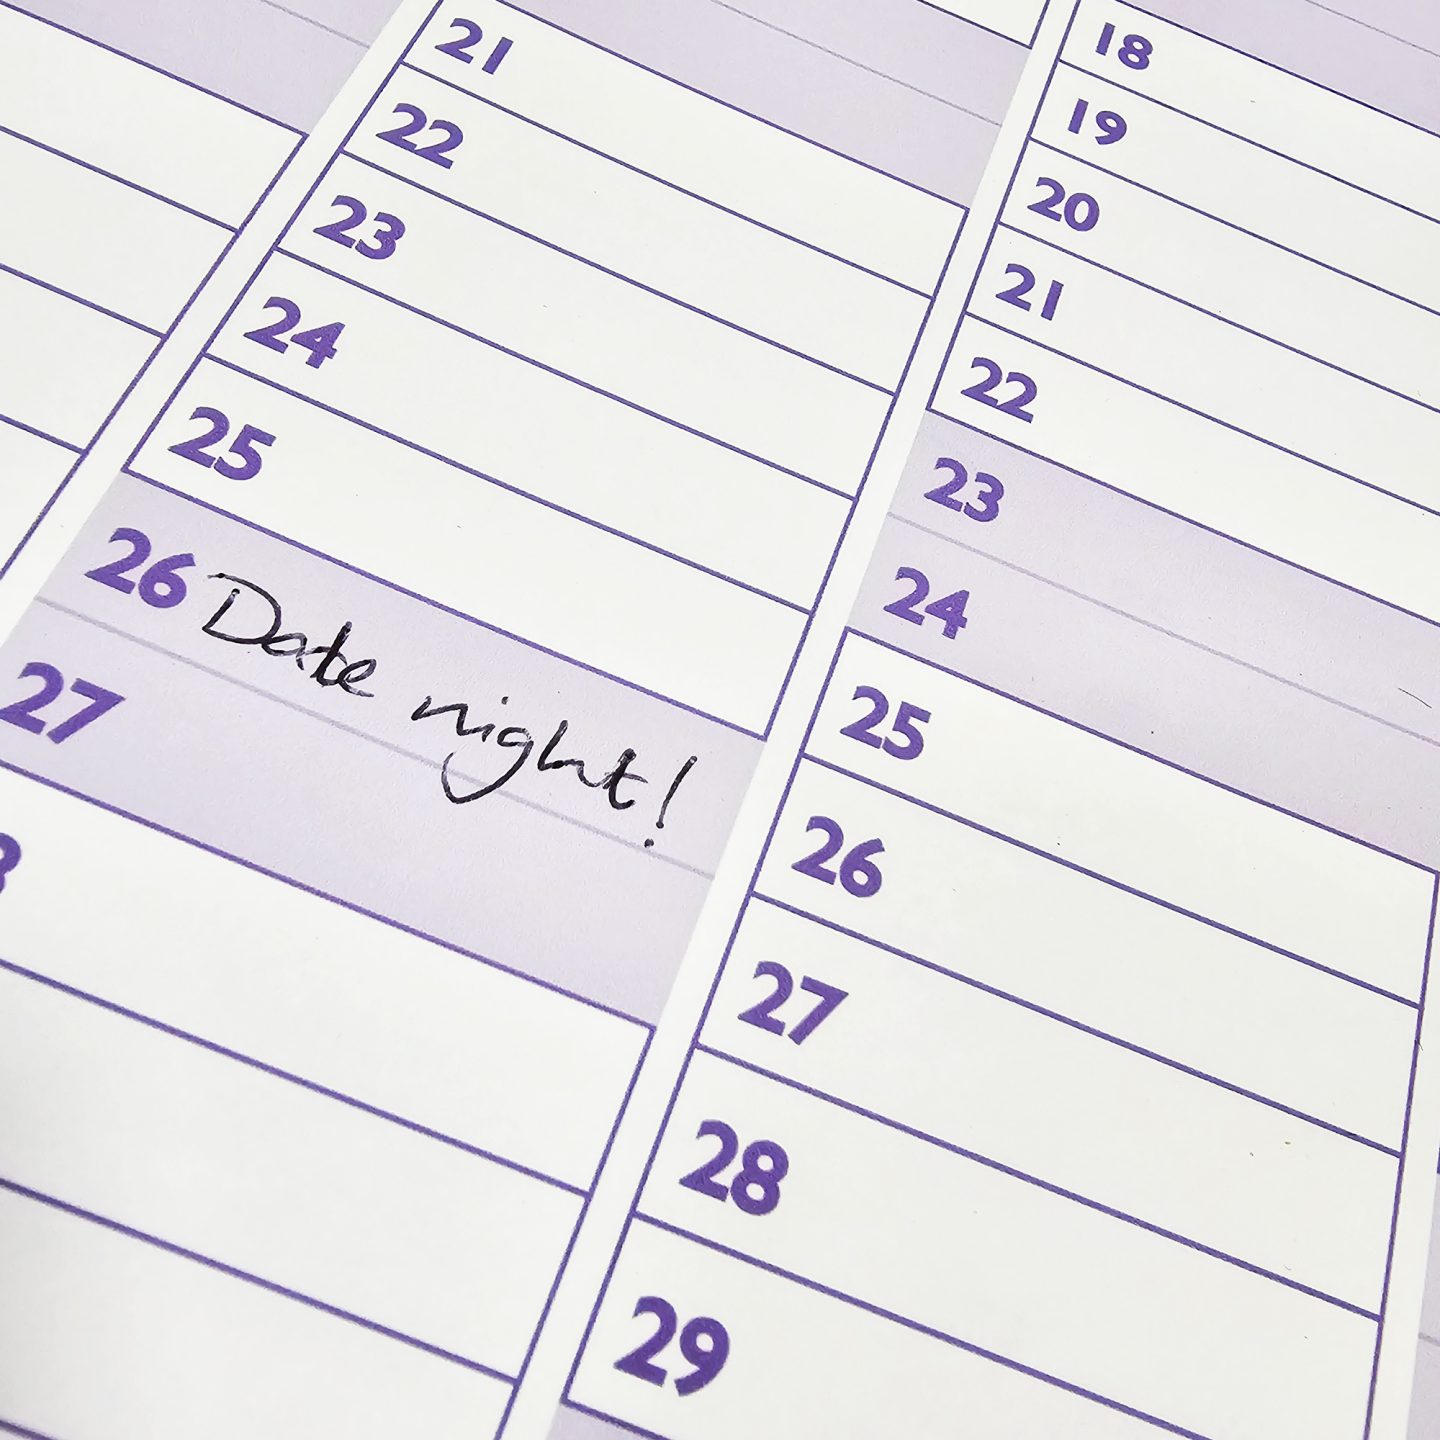 21
22
23
24
25
26 Date night!
27
18
19
20
21
22
23
24
25
26
27
28
29